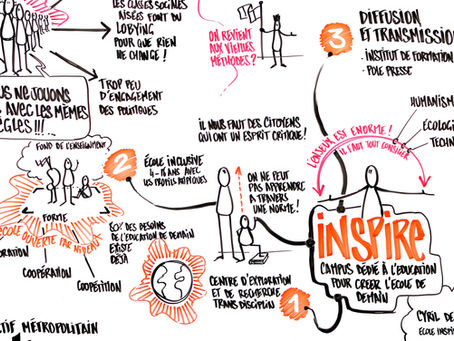 LES CLASSES SOCIALES
AISÉES FONT DU
LOBYING
POUR QUE RIEN
NE CHANGE !
NE JOUONS
AVEC LES MÊMES
TROP PEU
D'ENGAGEMENT
DES POLITIQUES
ON REVIENT
AUX VIEILLES
MÉTHODES ?
3
DIFFUSION
ET TRANSMISSION
- INSTITUT DE FORMATION
- POLE PRESSE
HUMANISME
ÉCOLOGIE
L'ENJEU EST ENORME !
IL FAUT TOUT CONSTRUIRE
IL NOUS FAUT DES CITOYENS
QUI ONT UN ESPRIT CRITIQUE !
FOND DE L'ENSEIGNEMENT
FORME
ÉCOLE OUVERTE PAR NIVEAU
COOPÉRATION
COOPÉTITION
2
ÉCOLE INCLUSIVE
4-16 ANS AVEC LES
PROFILS ATYPIQUES
80% DES BESOINS
DE L'ÉDUCATION DE DEMAIN
EXISTE
DÉJÀ
ON NE PEUT
PAS APPRENDRE
A TRAVERS
UNE NORME !
CENTRE D'EXPLORATION
ET DE RECHERCHE
TRANS DISCIPLIN
1
INSPIRE
CAMPUS DÉDIÉ À L'ÉDUCATION
POUR CRÉER L'ÉCOLE DE
DEMAIN
CYRIL DE
ÉCOLE INSPI
TIF MÉTROPOLITAIN